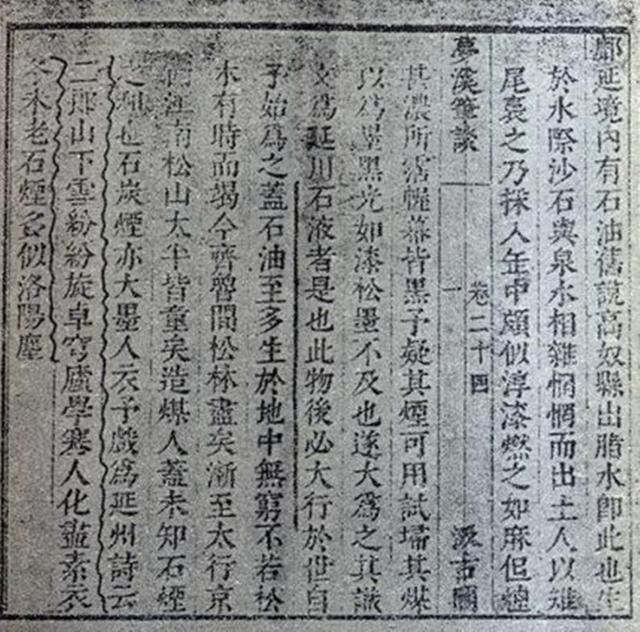 鄜延境內有石油舊說高奴縣出脂水即此也生
於水際沙石與泉水相雜惘惘而出土人以雉
尾裛之乃採入缶中頗似淳漆燃之如麻但煙
夢溪筆談 卷二十四 一 汲古閣
甚濃所霑幄幕皆黑予疑其煙可用試埽其煤
以爲墨黑光如漆松墨不及也遂大爲之其識
文爲延川石液者是也此物後必大行於世自
予始爲之蓋石油至多生於地中無窮不若松
木有時而竭今齊魯間松林盡矣漸至太行京
西江南松山太半皆童矣造煤人蓋未知石煙
之利也石炭煙亦大墨人衣予戲爲延州詩云
二郎山下雪紛紛旋卓穹廬學塞人化盡素衣
冬未老石煙多似洛陽塵